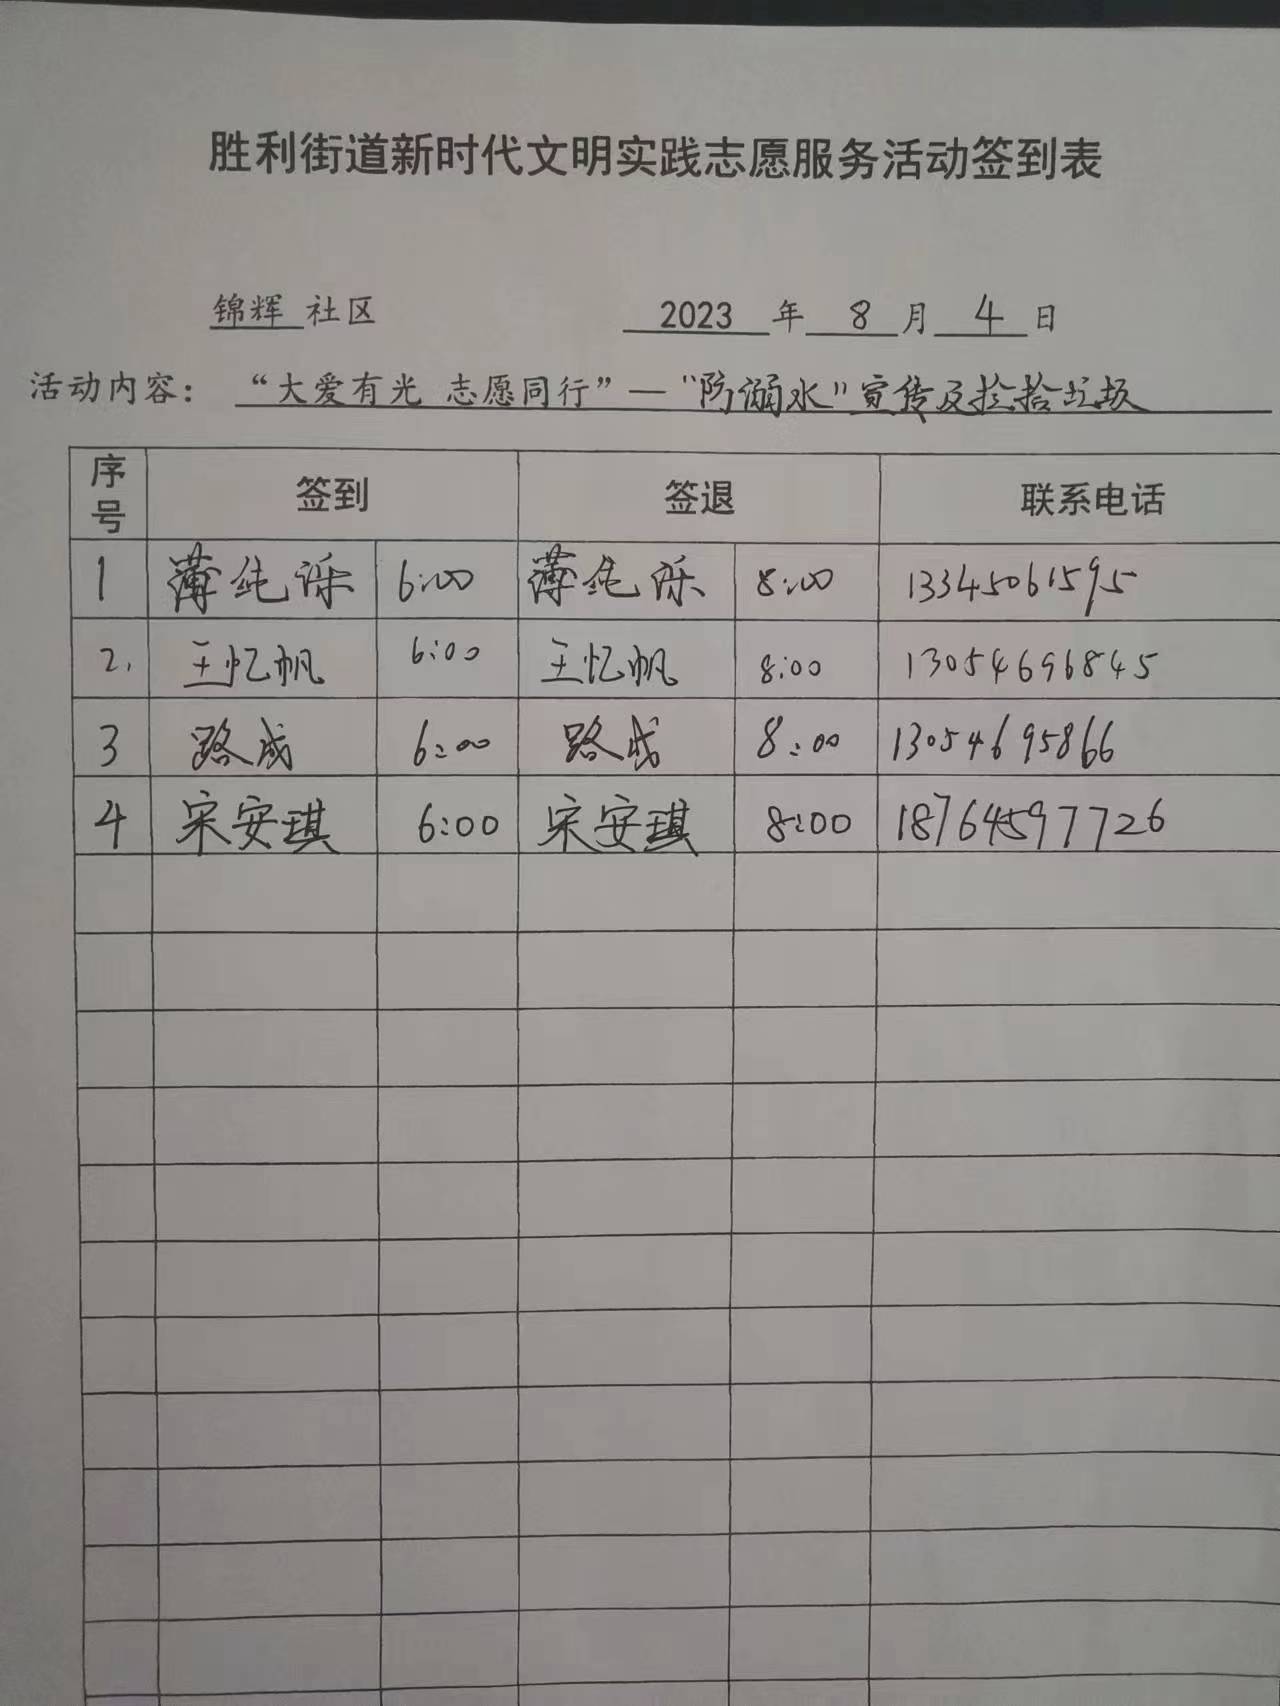 胜利街道新时代文明实践志愿服务活动签到表
锦辉 社区 2023 年 8 月 4 日
活动内容：“大爱有光 志愿同行”—“防溺水”宣传及捡拾垃圾
序号 签到 签退 联系电话
1 薄纯泺 6:00 薄纯泺 8:00 13345061595
2. 王忆帆 6:00 王忆帆 8:00 13054696845
3 路成 6:00 路成 8:00 13054695866
4 宋安琪 6:00 宋安琪 8:00 18764597726